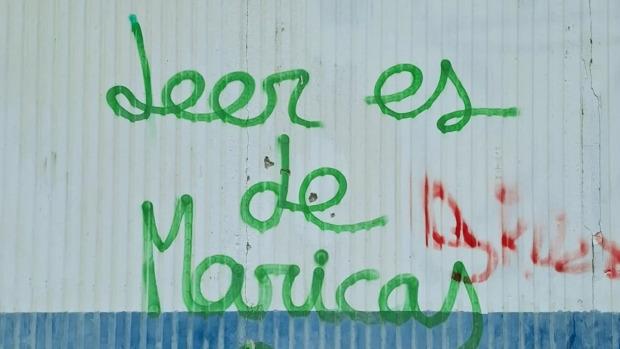 Leer es
de
Maricas